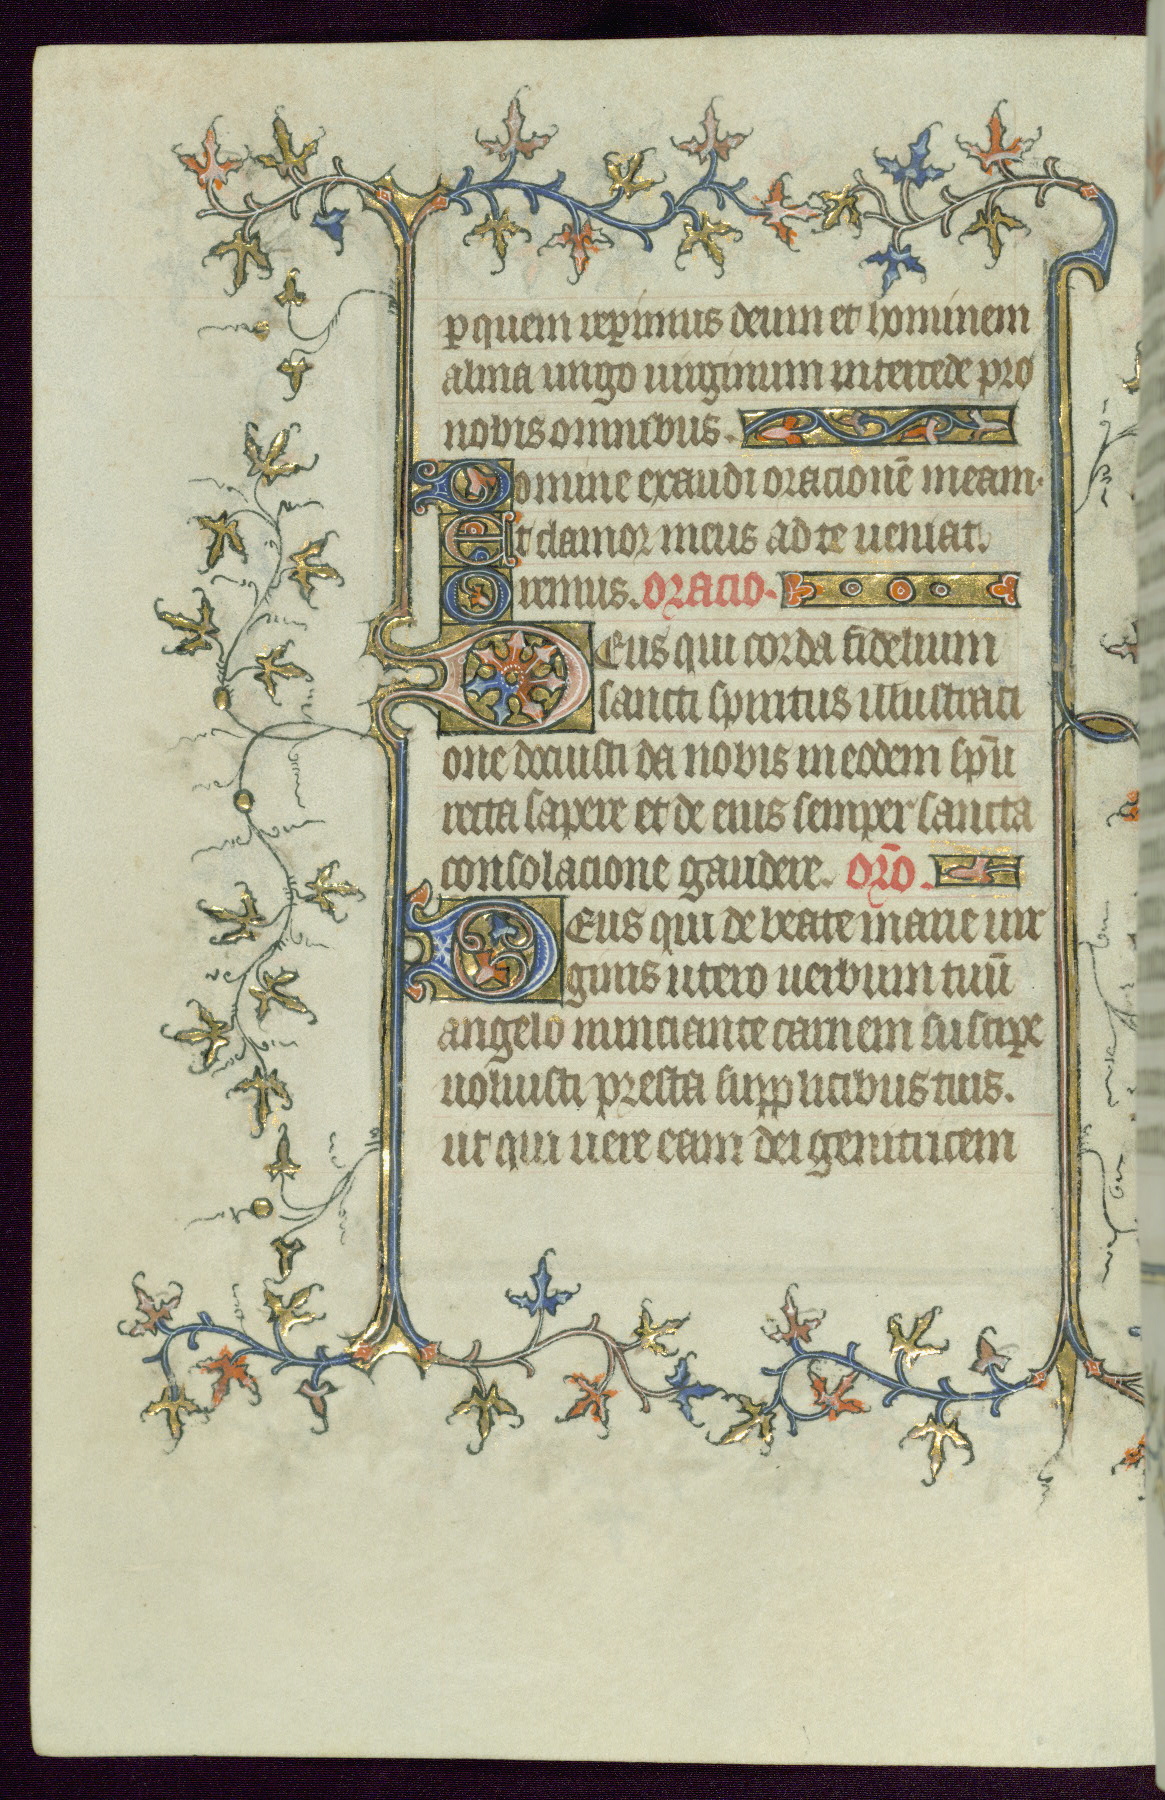 ꝑ quem repimus deum et hominem
alma uirgo uirginum intercede pro
nobis omnibus.
Domine exaudi oracionē meam.
Et clamor meus ad te ueniat.
Oremus. Oracio.
Deus qui corda fidelium
sancti spiritus illustraci
one docuisti da nobis in eodem spū
recta sapere et de eius semper sancta
consolacione gaudere. orō.
Deus qui de beate marie uir
ginis utero uerbum tuū
angelo nunciante carnem suscipe
uoluisti presta supplicibus tuis.
ut qui uere eam dei genitricem